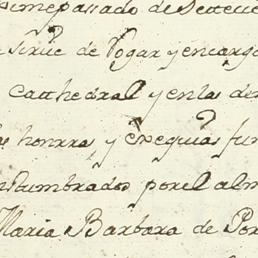 pasado de
sirue de Rogar y encarg
Cathedral y en las de
honrras y exequias fun
stumbrados por el alm
Maria Barbara de Por